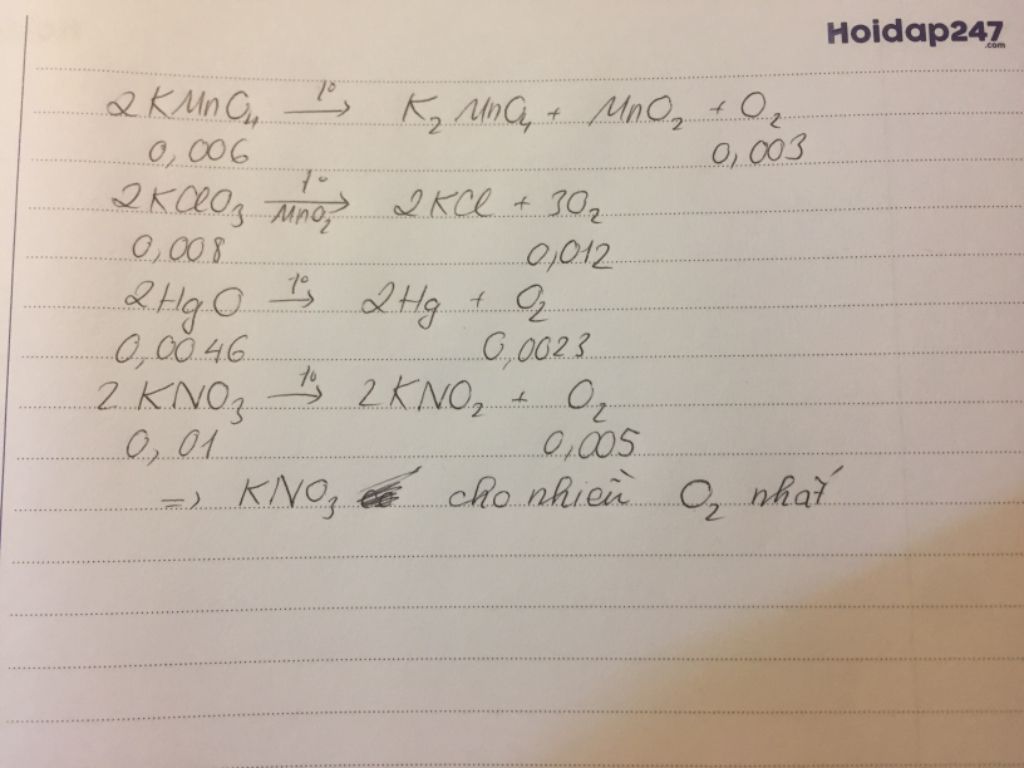 Hoidap247
.com
2KMnO₄ —t°→ K₂MnO₄ + MnO₂ + O₂
0,006 0,003
2KClO₃ —t°/MnO₂→ 2KCl + 3O₂
0,008 0,012
2HgO —t°→ 2Hg + O₂
0,0046 0,0023
2KNO₃ —t°→ 2KNO₂ + O₂
0,01 0,005
=> KNO₃ cho nhiều O₂ nhất